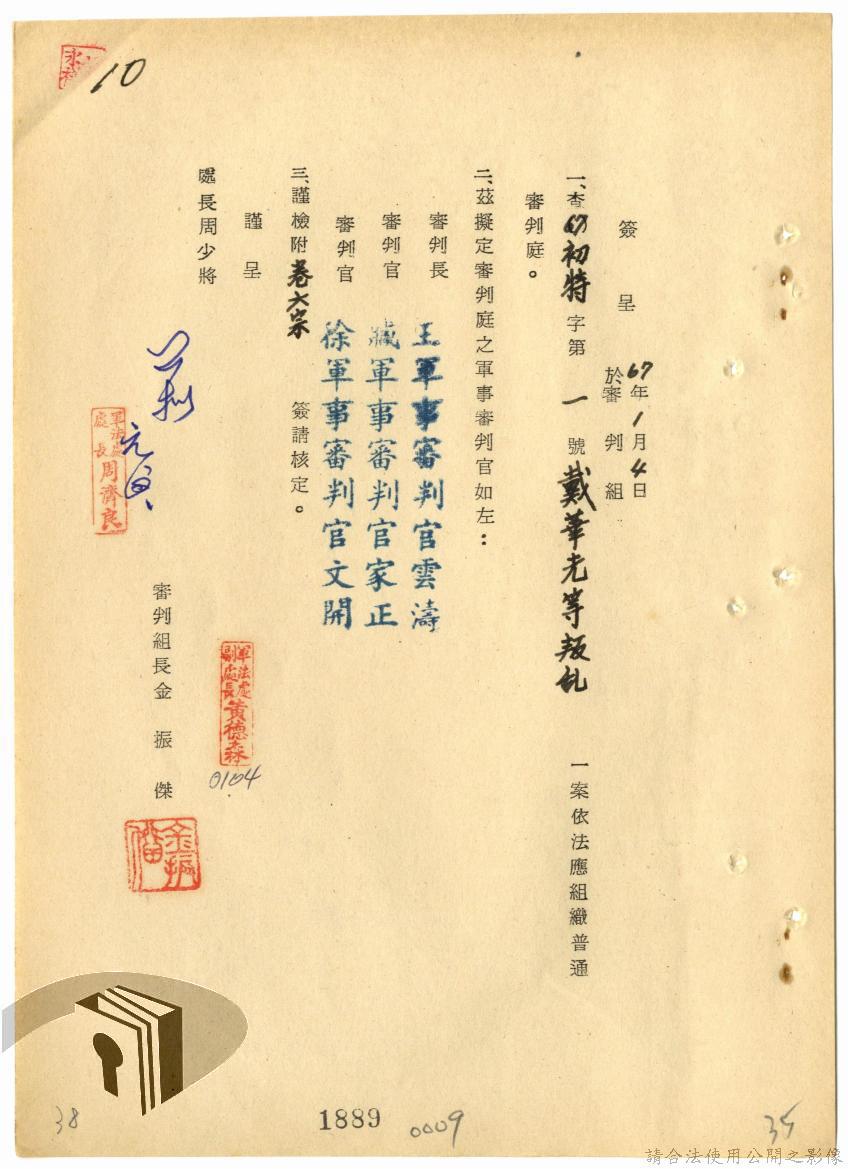 10
簽呈
67年1月4日
於審判組
一、查67初特字第一號戴華光等叛乱一案依法應組織普通
審判庭。
二、茲擬定審判庭之軍事審判官如左：
審判長 王軍事審判官雲濤
審判官 臧軍事審判官家正
審判官 徐軍事審判官文開
三、謹檢附卷六宗 簽請核定。
謹呈
處長周少將
軍法處副處長黃德森
0104
審判組長金振傑
軍法處處長周濟良
38
1889
0009
35
請合法使用公開之影像